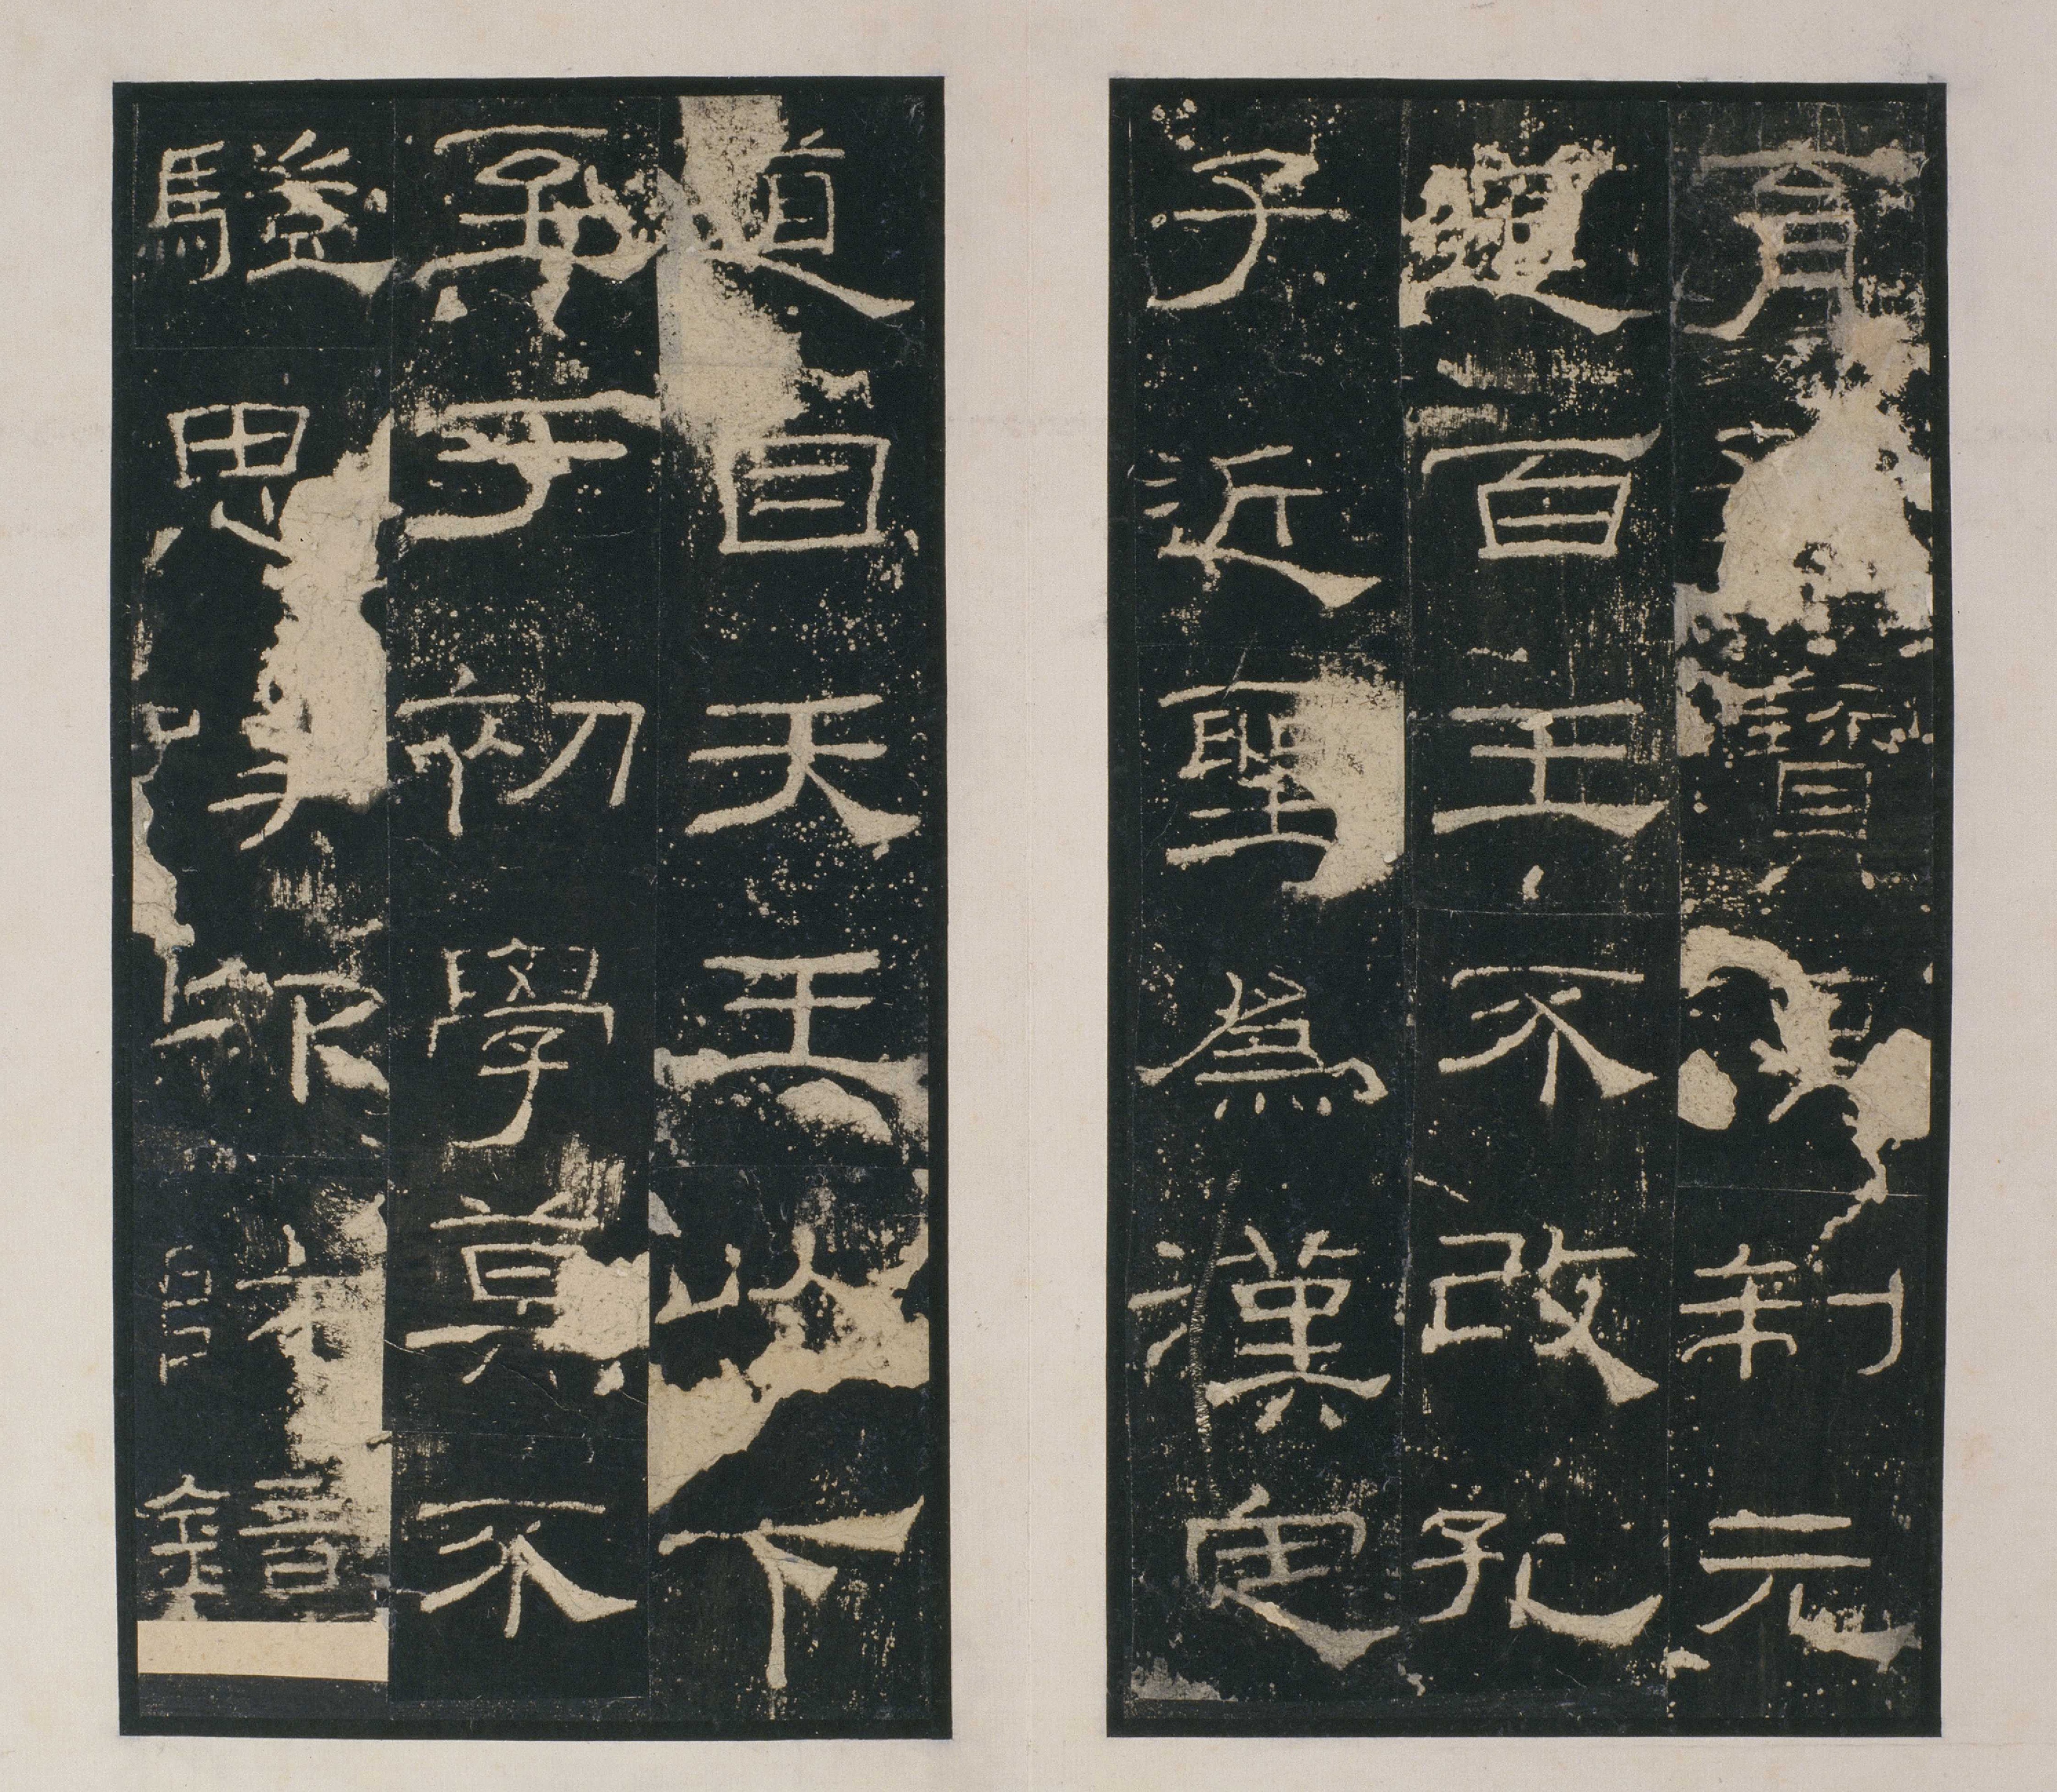 育寶制元
道百王不改孔
子近聖為漢定
道自天王以下
至于初學莫不
驥思卬師鏡